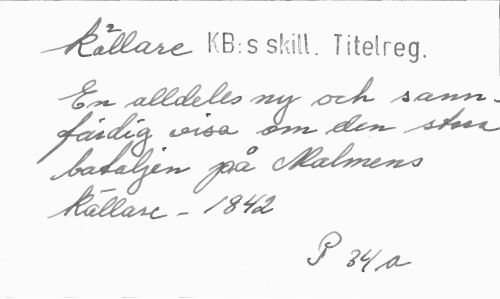 Källare KB:s skill. Titelreg.
En alldeles ny och sann-
färdig visa om den stora
bataljen på Malmens
Källare - 1842
P 34 a